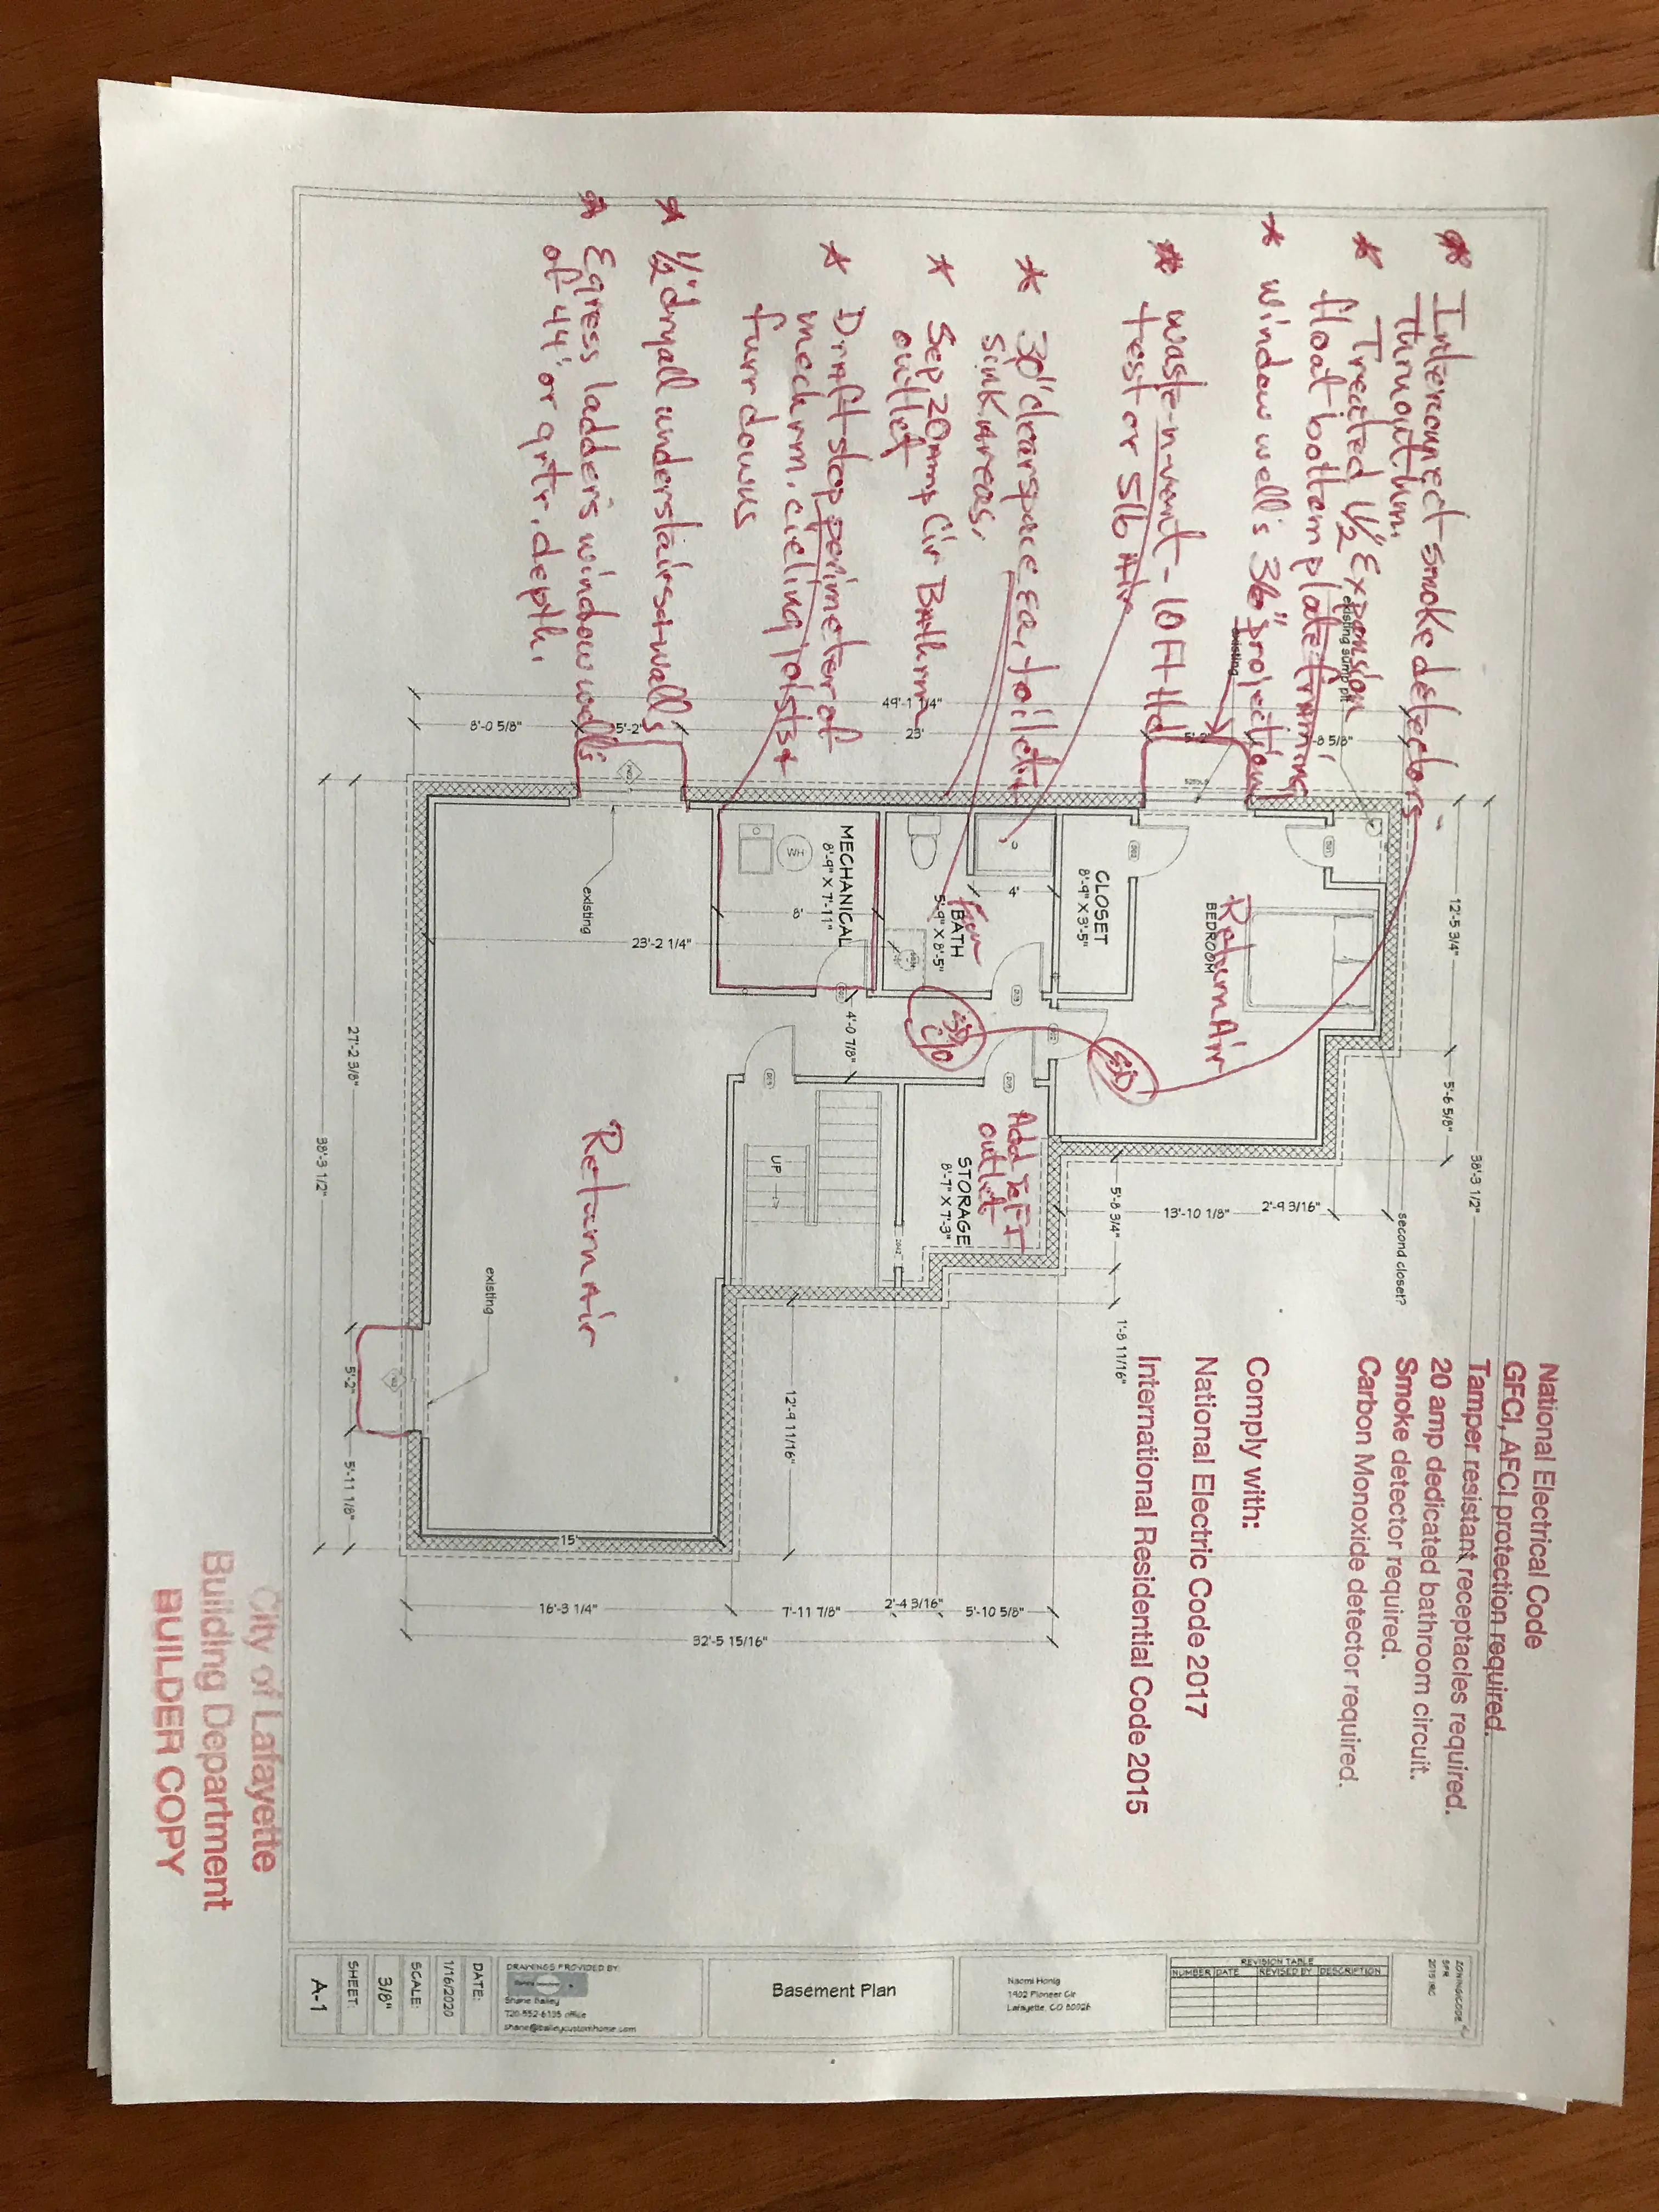 * Interconnect smoke detectors
Thruout hm.
* Treated 1/2" Expansion
float bottom plate framing
* window well's 36" projection
* waste-n-vent - 10 Ft Hd
test or 5lb Air
* 30" clearspace ea, toilet +
sink Areas.
* Sep 20amp Cir Bathrm
outlet
* Draft stop perimeter of
mech rm. cieling joists +
furr downs
* 1/2" drywall under stairs + walls
* Egress ladders window wells
of 44" or grtr. depth.
National Electrical Code
GFCI, AFCI protection required.
Tamper resistant receptacles required.
20 amp dedicated bathroom circuit.
Smoke detector required.
Carbon Monoxide detector required.
Comply with:
National Electric Code 2017
International Residential Code 2015
existing sump pit
existing
49'-1 1/4"
8'-0 5/8"
5'-2"
23'
5'-2"
12'-5 3/4"
5'-6 5/8"
38'-3 1/2"
second closet?
2'-9 3/16"
13'-10 1/8"
5'-8 3/4"
1'-8 11/16"
BEDROOM
Return Air
CLOSET
8'-9" X 3'-5"
4'
BATH
5'-9" X 8'-5"
Fan
MECHANICAL
8'-9" X 7'-11"
WH
8'
23'-2 1/4"
4'-0 7/8"
SD
C/O
SD
Add GFI
outlet
STORAGE
8'-7" X 7'-3"
UP
existing
Return Air
existing
12'-9 11/16"
15'
27'-2 3/8"
38'-3 1/2"
5'-2"
5'-11 1/8"
16'-3 1/4"
7'-11 7/8"
2'-4 3/16"
5'-10 5/8"
32'-5 15/16"
City of Lafayette
Building Department
BUILDER COPY
ZONING/CODE
SFR
2015 IRC
REVISION TABLE
NUMBER DATE REVISED BY DESCRIPTION
Naomi Honig
1902 Pioneer Cir
Lafayette, CO 80026
Basement Plan
DRAWINGS PROVIDED BY:
Shane Bailey
720-552-6135 office
shane@baileycustomhome.com
DATE:
1/16/2020
SCALE:
3/8"
SHEET:
A-1